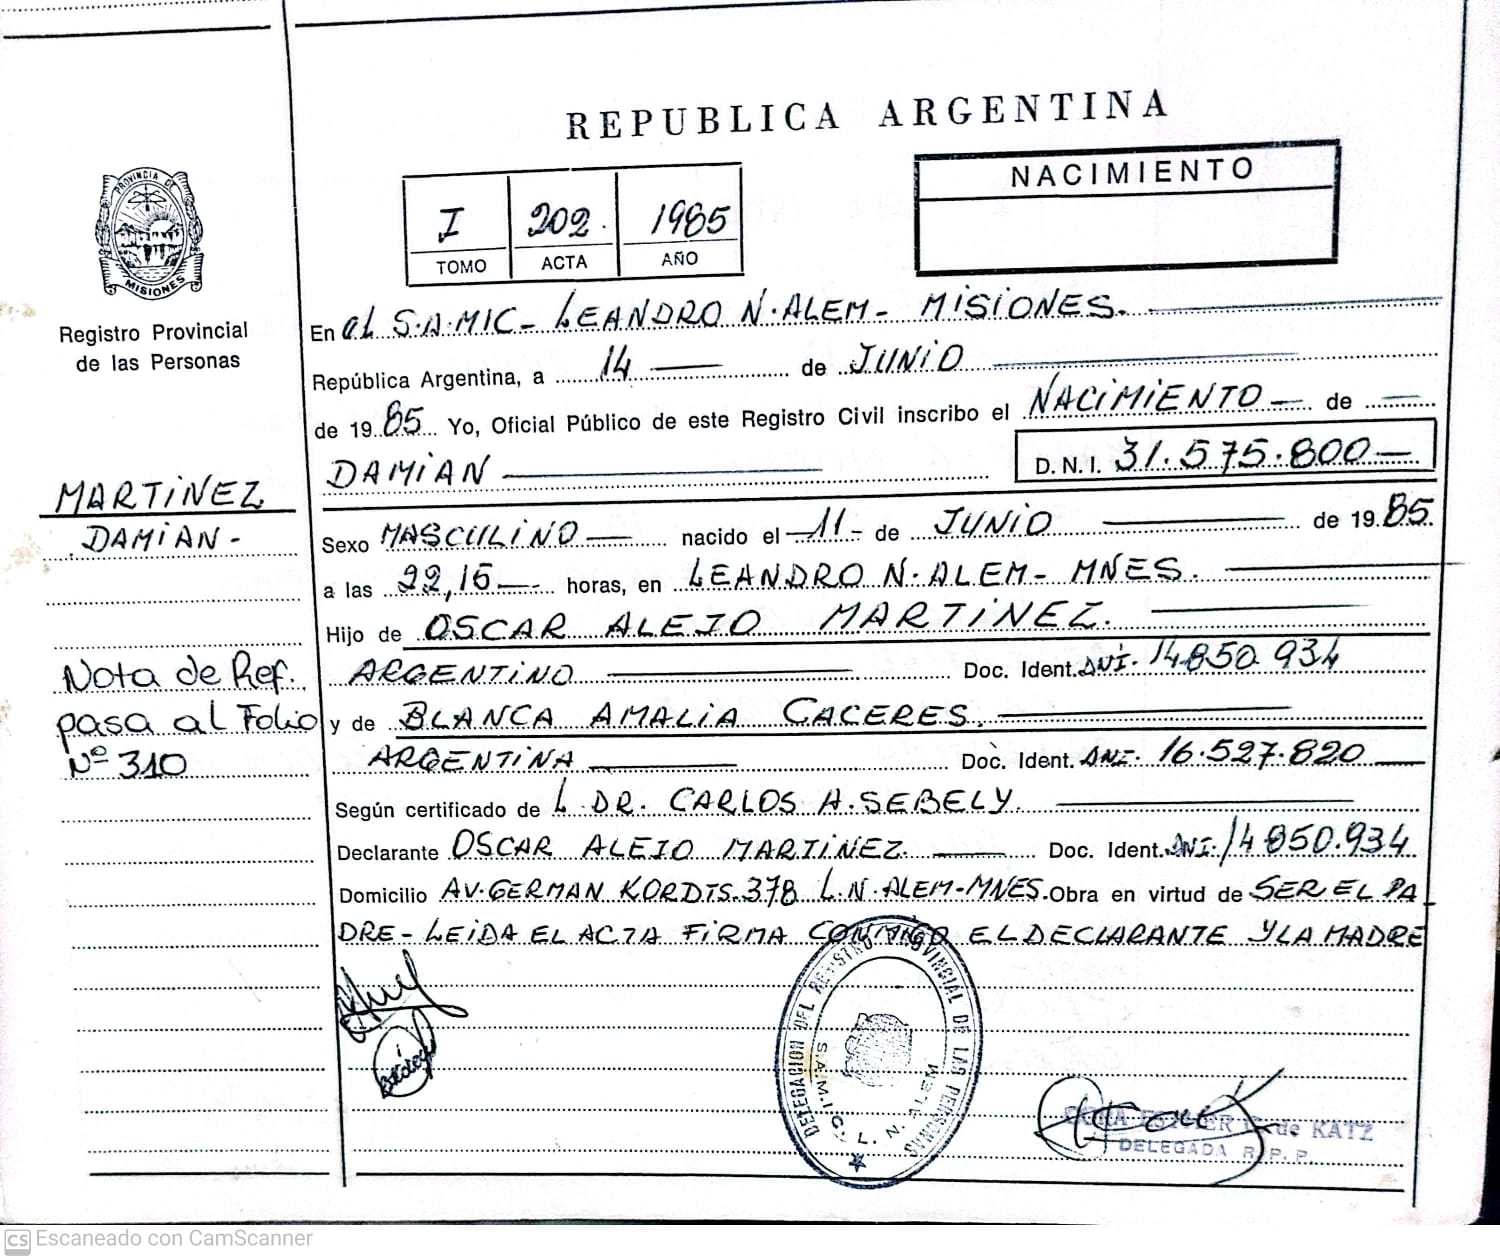 REPUBLICA ARGENTINA
NACIMIENTO
I 202. 1985
TOMO ACTA AÑO
PROVINCIA DE
MISIONES
Registro Provincial
de las Personas
MARTINEZ
DAMIAN -
Nota de Ref.
pasa al Folio
Nº 310
En el S.A.MIC- LEANDRO N. ALEM- MISIONES.
República Argentina, a 14 de JUNIO
de 1985 Yo, Oficial Público de este Registro Civil inscribo el NACIMIENTO de
DAMIAN D. N. I. 31.575.800
Sexo MASCULINO nacido el 11 de JUNIO de 1985.
a las 22,15 horas, en LEANDRO N. ALEM- MNES.
Hijo de OSCAR ALEJO MARTINEZ.
ARGENTINO Doc. Ident. DNI. 14850.934
y de BLANCA AMALIA CACERES.
ARGENTINA Doc. Ident. DNI. 16.527.820
Según certificado de L DR. CARLOS A. SEBELY.
Declarante OSCAR ALEJO MARTINEZ. Doc. Ident. DNI. 14850.934
Domicilio AV. GERMAN KORDTS. 378 L.N. ALEM-MNES. Obra en virtud de SER EL PA
DRE- LEIDA EL ACTA FIRMA CONMIGO EL DECLARANTE Y LA MADRE
DELEGACION DEL REGISTRO PROVINCIAL DE LAS PERSONAS
S.A.M.I.C. L. N. ALEM
de KATZ
DELEGADA R. P. P.
CS Escaneado con CamScanner